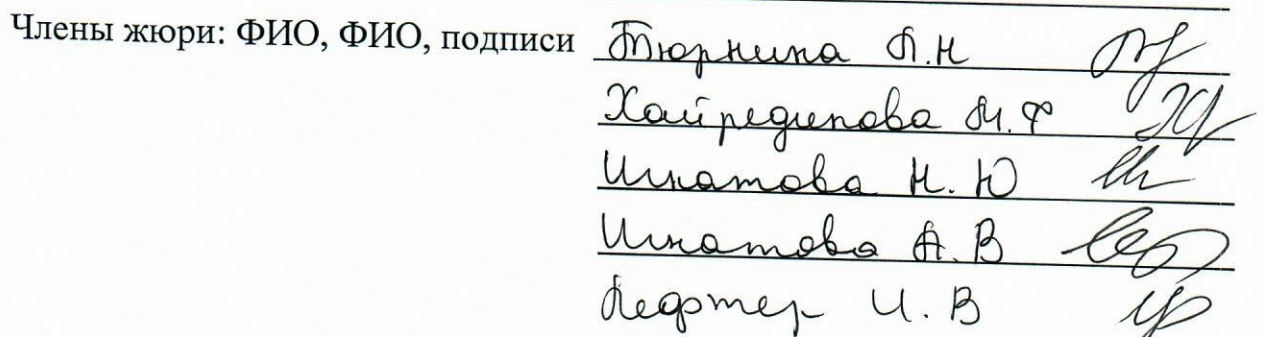 Члены жюри: ФИО, ФИО, подписи Тюрнина Л.Н
Хайрединова М.Ф
Игнатова Н. Ю
Игнатова А. В
И. В